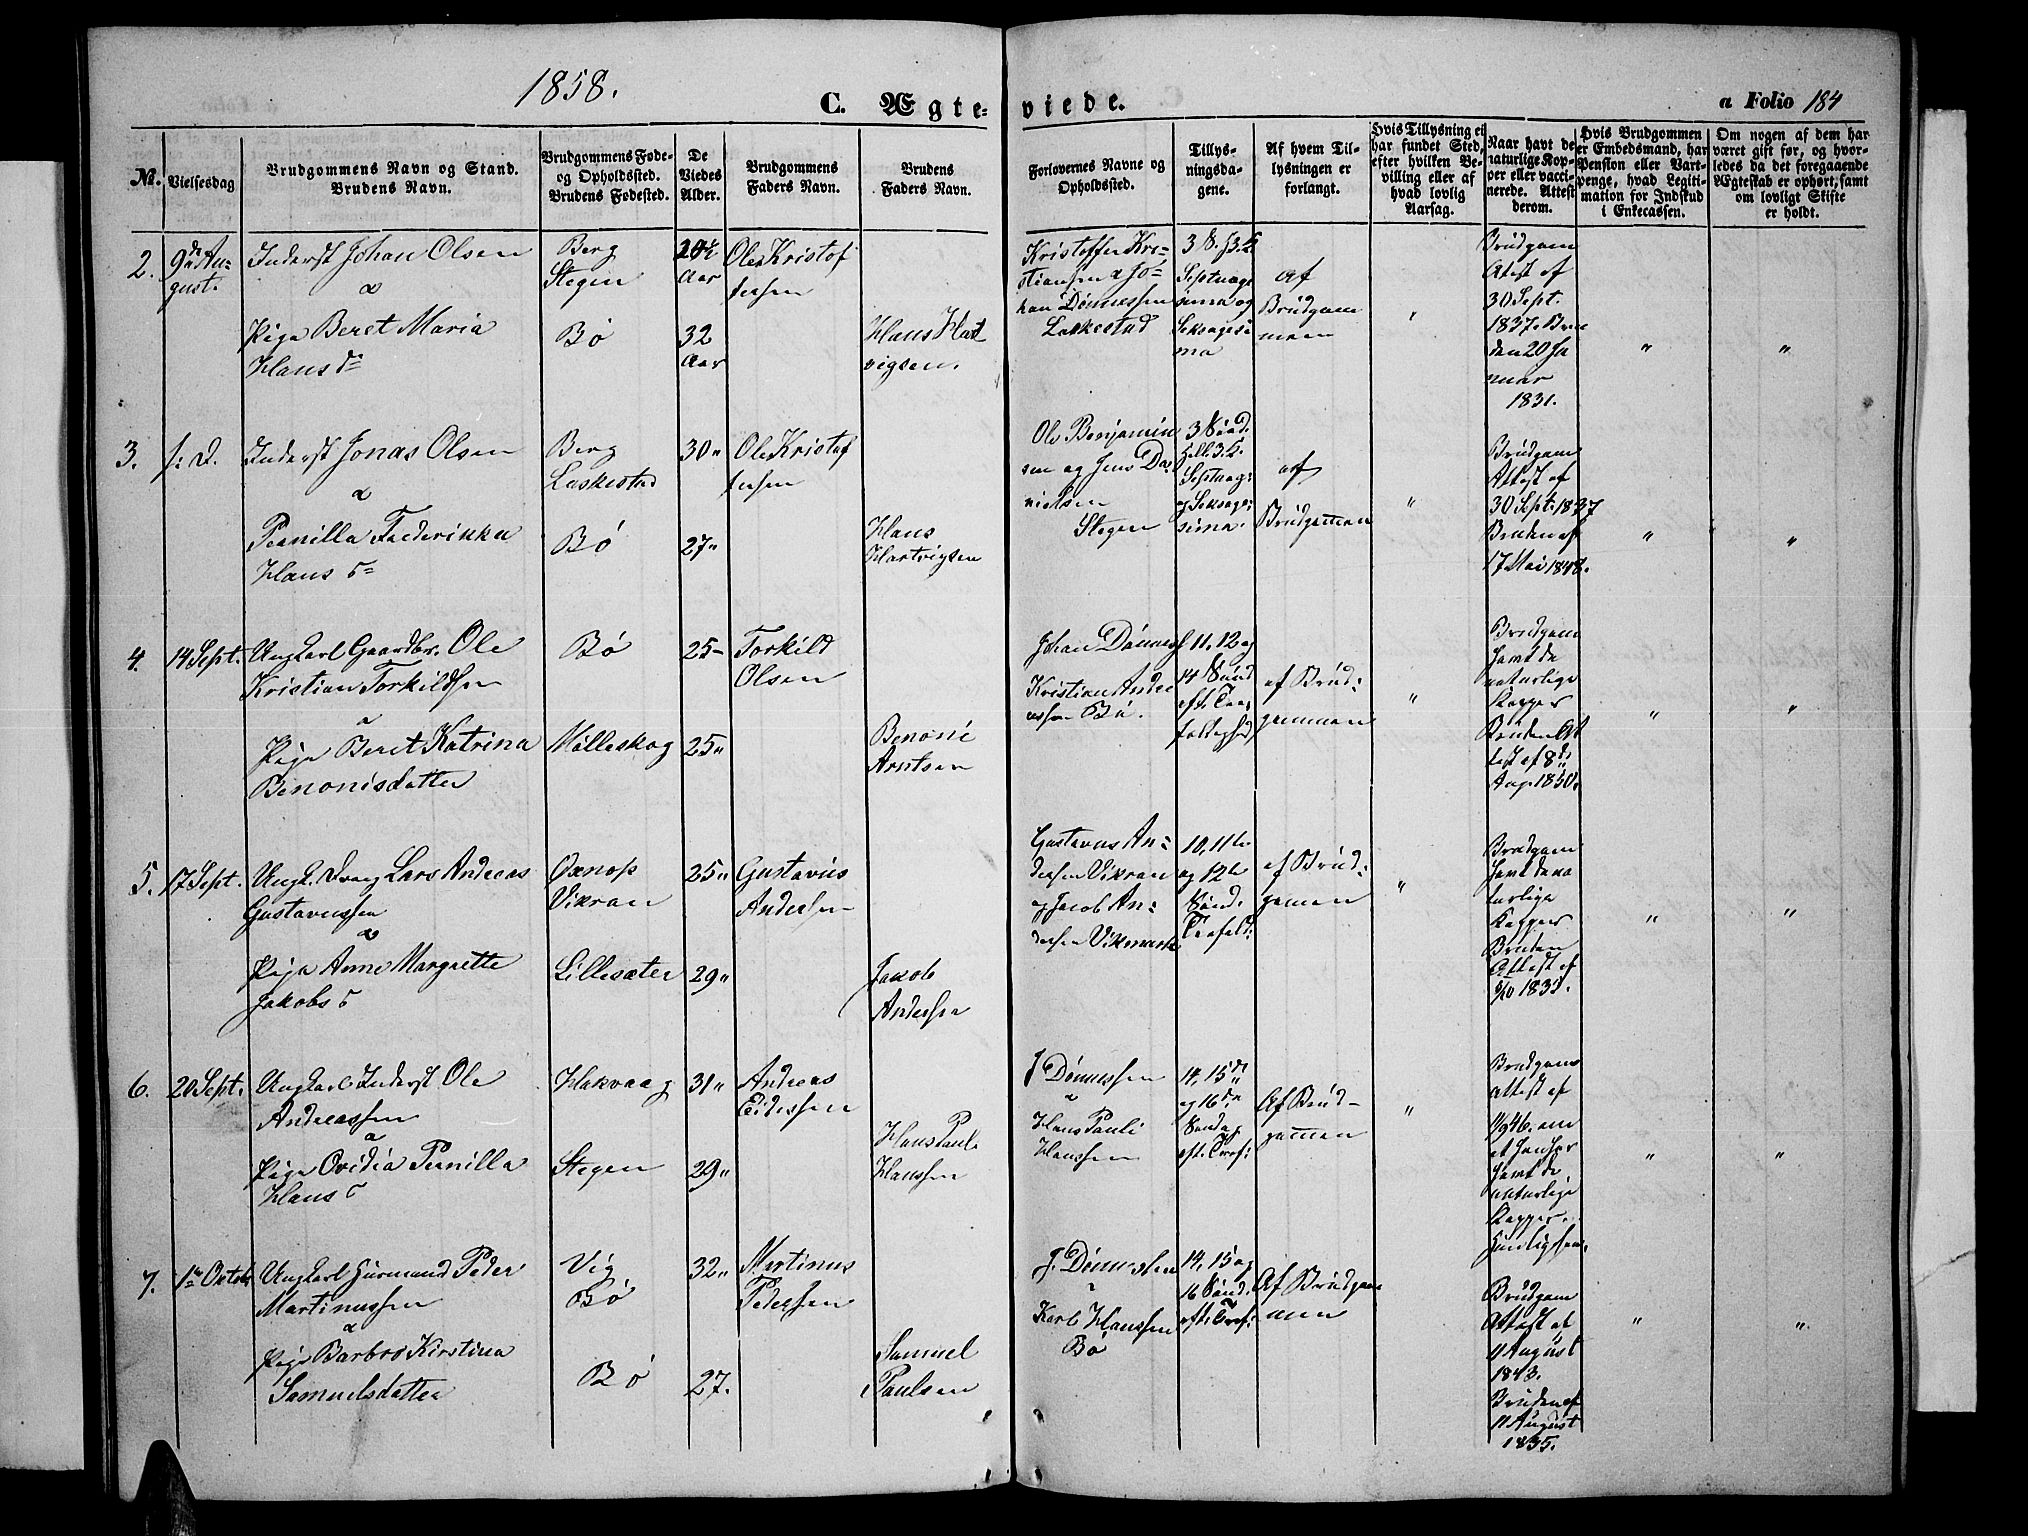 1858.
C. Ægteviede.
a Folio 184
№. Vielsesdag
Brudgommens Navn og Stand.
Brudens Navn.
Brudgommens Føde-
og Opholdssted.
Brudens Fødested.
De
Viedes
Alder.
Brudgommens
Faders Navn.
Brudens
Faders Navn.
Forlovernes Navne og
Opholdssted.
Tillys-
ningsda-
gene.
Af hvem Til-
lysningen er
forlangt.
Hvis Tillysning ei
har fundet Sted,
efter hvilken Be-
villing eller af
hvad lovlig
Aarsag.
Naar havt de
naturlige Kop-
per eller vacci-
nerede. Attest
derom.
Hvis Brudgommen
er Embedsmand, har
Pension eller Vart-
penge, hvad Legiti-
mation for Indskud
i Enkecassen.
Om nogen af dem har
været gift før, og hvor-
ledes da det foregaaende
Ægteskab er ophørt, samt
om lovligt Skifte
er holdt.
2. 9de Au-
gust.
Inderst Johan Olsen
&
Pige Beret Maria
Hans dr
Berg
Stegen
Bø
Aar
32
Aar
Ole Kristof
fersen
Hans Hart
vigsen.
Kristoffer Kri-
stiansen & Jo-
han Dønnessen
Laskestad
Septuage
sima og
Seksagesi
ma
af
Brudgom
men
"
Brudgom
Attest af
30 Sept.
1837. Bru
den 20 Ja
nuar
1831.
"
"
3. s: D.
Inderst Jonas Olsen
&
Pernilla Frederikka
Hans D
Berg
Laskestad
Bø
30"
27"
Ole Kristof
fersen
Hans
Hartvigsen
Ole Benjamin
sen og Jens Da-
nielsen
Stegen
3 Sønd.
Septuag:
og Seksage:
sima.
af
Brudgommen
"
Brudgom
Attest af
30 Sept. 1837
Bruden af
17 Mai 1848.
"
"
4. 14 Sept.
Ungkarl Gaardbr. Ole
Kristian Torkildsen
&
Pige Beret Katrina
Benonisdatter
Bø
Mølleskog
25-
25"
Torkild
Olsen
Benoni
Arntsen
Johan Dønnes
Kristian Andre
assen Bø.
11, 12 og
14 Sønd
eft. Tre
foldighed
af Brud:
gommen
"
Brudgom
havt de
naturlige
Kopper
Bruden At
test af 8de
Aug 1850.
"
"
5. 17 Sept.
Ungk. Dreng Lars Andreas
Gustavussen
&
Pige Anne Margrette
Jakobs D
Oxnop
Vikran
Lillesæter
25"
29"
Gustavus
Andersen
Jakob
Andersen
Gustavus An:
dersen Vikran
og Jacob An:
dersen Vikmark
10, 11te
og 12te
Sønd.
Trefold:
af Brud:
gommen
"
Brudgom
havt de na
turlige
Kopper
Bruden
Attest af
"
"
6. 20 Sept.
Ungkarl Inderst Ole
Andreassen
&
Pige Ovidia Pernilla
Hans D
Hakvaag
Stegen
31"
29"
Andreas
Eidissen
Hans Paul
Hanssen
J Dønnessen
&
Hans Pauli
Hanssen
14, 15de
og 16de
Søndag
eft. Tref:
Af Brud-
gommen
"
Brudgoms
attest af
havt de
naturlige
Kopper
"
"
7. 1ste Octob
Ungkarl Huusmand Peder
Martinussen
&
Pige Barbro Kirstina
Samuelsdatter
Vig
Bø
Bø
32"
27.
Martinus
Pedersen
Samuel
Paulsen
J. Dønnessen
&
Karl Hanssen
Bø
14, 15 og
16 Sønd.
eft. Tref:
Af Brudgom
men
Brudgom
Attest af
11 August
1843.
Bruden af
11 August
1835.
"
"